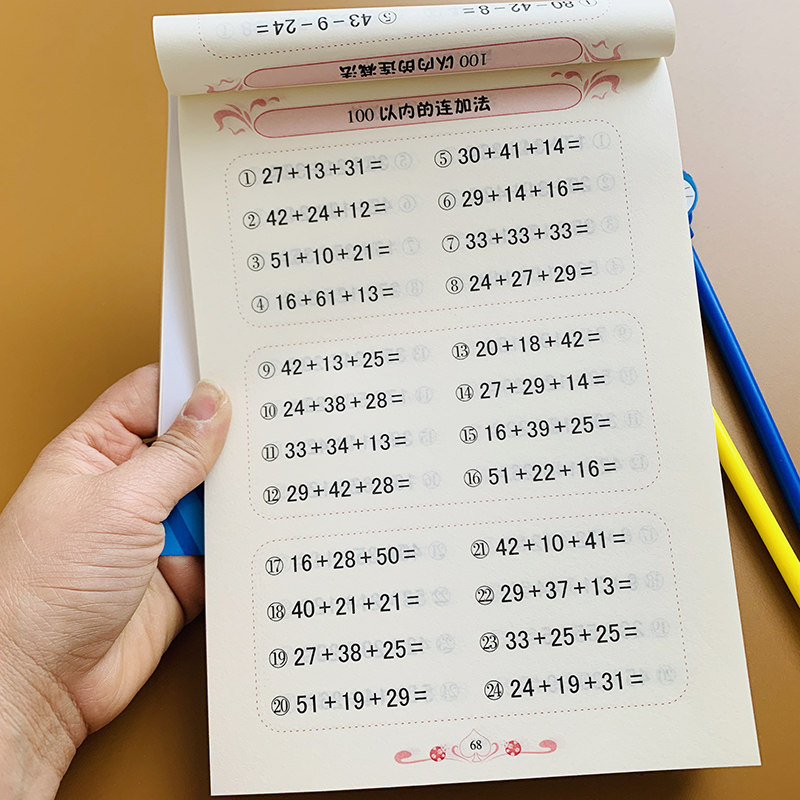 ① 80-42-8=
⑤ 43-9-24=
100 以内的连减法
100 以内的连加法
① 27+13+31=
⑤ 30+41+14=
② 42+24+12=
⑥ 29+14+16=
③ 51+10+21=
⑦ 33+33+33=
④ 16+61+13=
⑧ 24+27+29=
⑨ 42+13+25=
⑬ 20+18+42=
⑩ 24+38+28=
⑭ 27+29+14=
⑪ 33+34+13=
⑮ 16+39+25=
⑫ 29+42+28=
⑯ 51+22+16=
⑰ 16+28+50=
㉑ 42+10+41=
⑱ 40+21+21=
㉒ 29+37+13=
⑲ 27+38+25=
㉓ 33+25+25=
⑳ 51+19+29=
㉔ 24+19+31=
68